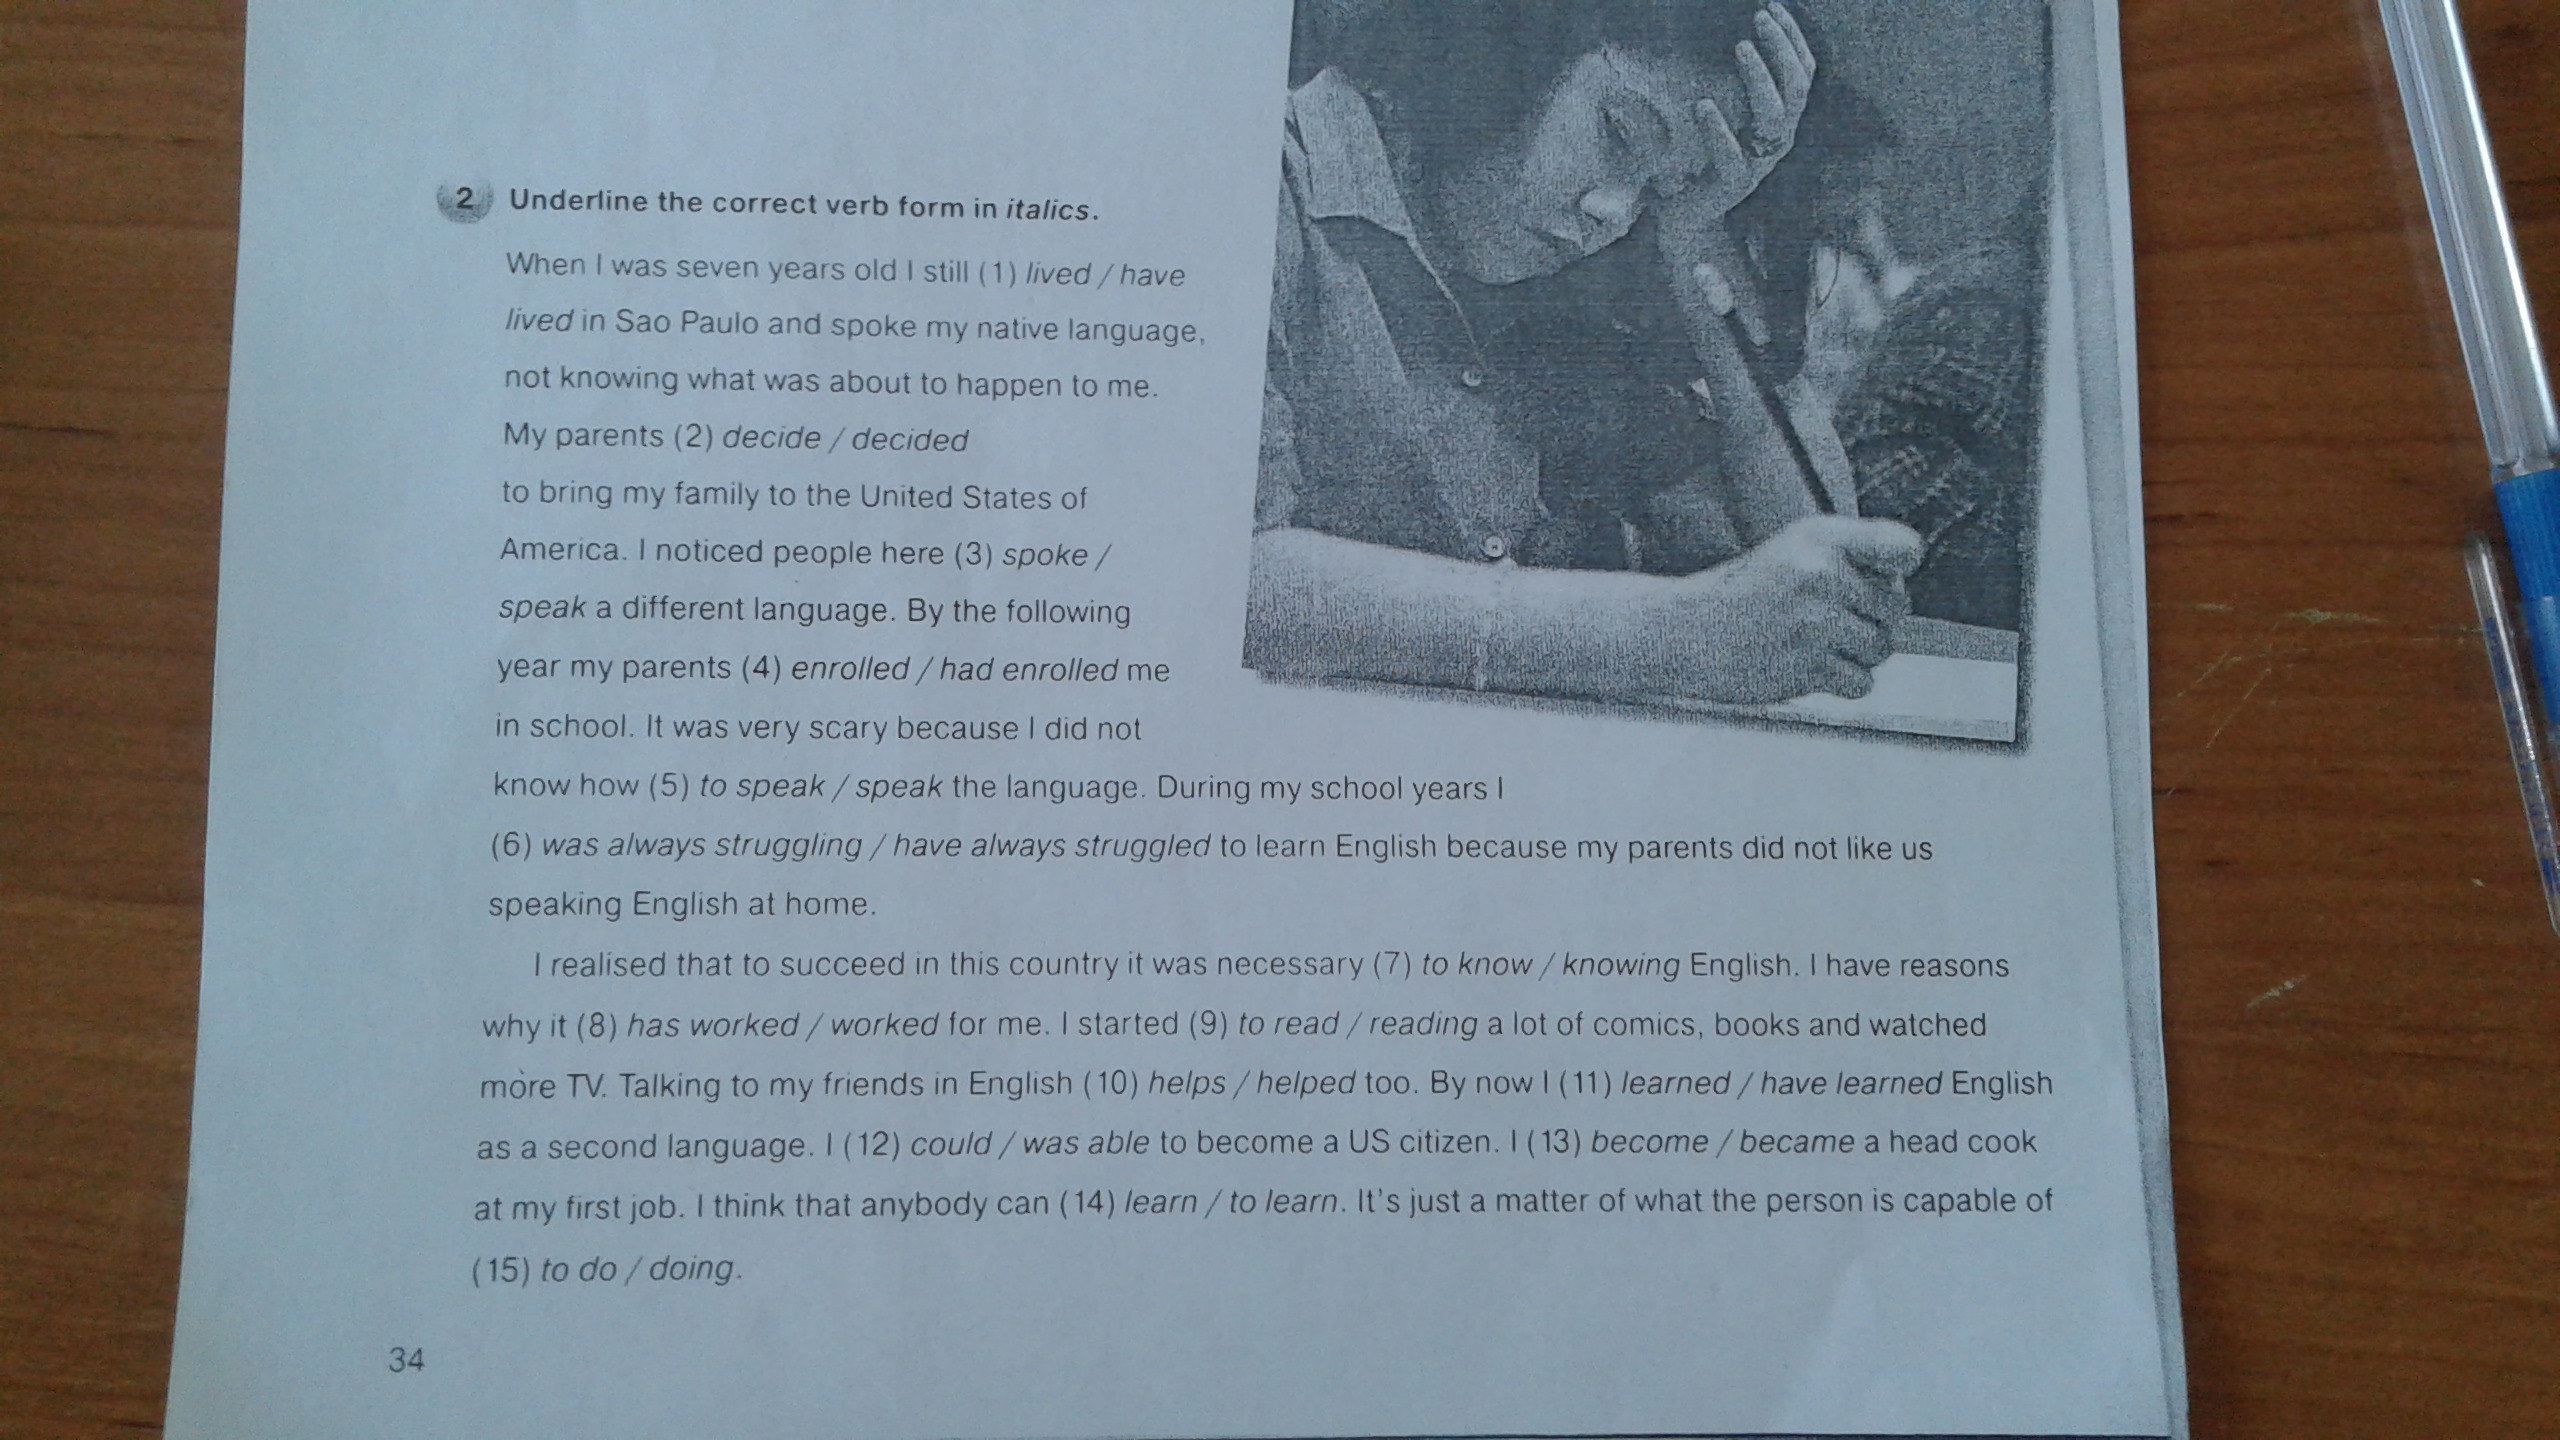 2 Underline the correct verb form in italics.
When I was seven years old I still (1) lived / have
lived in Sao Paulo and spoke my native language,
not knowing what was about to happen to me.
My parents (2) decide / decided
to bring my family to the United States of
America. I noticed people here (3) spoke /
speak a different language. By the following
year my parents (4) enrolled / had enrolled me
in school. It was very scary because I did not
know how (5) to speak / speak the language. During my school years I
(6) was always struggling / have always struggled to learn English because my parents did not like us
speaking English at home.
I realised that to succeed in this country it was necessary (7) to know / knowing English. I have reasons
why it (8) has worked / worked for me. I started (9) to read / reading a lot of comics, books and watched
more TV. Talking to my friends in English (10) helps / helped too. By now I (11) learned / have learned English
as a second language. I (12) could / was able to become a US citizen. I (13) become / became a head cook
at my first job. I think that anybody can (14) learn / to learn. It's just a matter of what the person is capable of
(15) to do / doing.
34